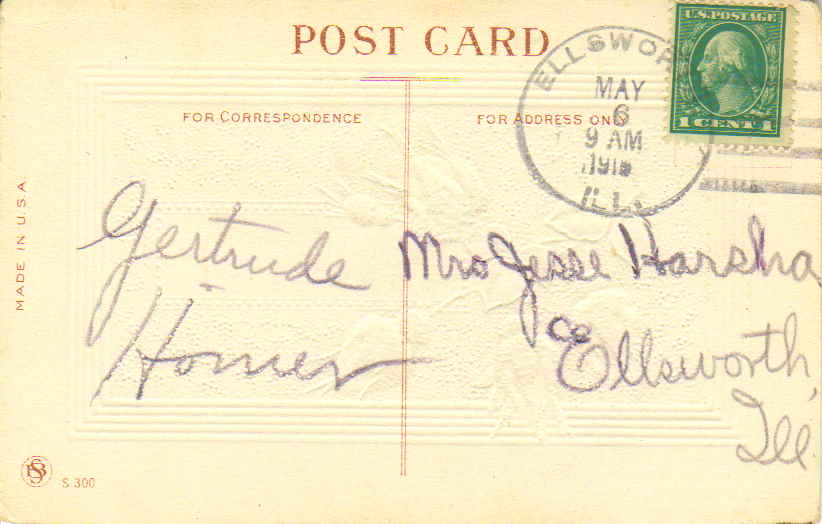 POST CARD
FOR CORRESPONDENCE
FOR ADDRESS ONLY
U.S. POSTAGE
1 CENT 1
ELLSWOR
MAY
6
9 AM
ILL.
MADE IN U.S.A.
Gertrude
Homer
Mrs Jesse Harsha
Ellsworth,
Ill.
S. 300